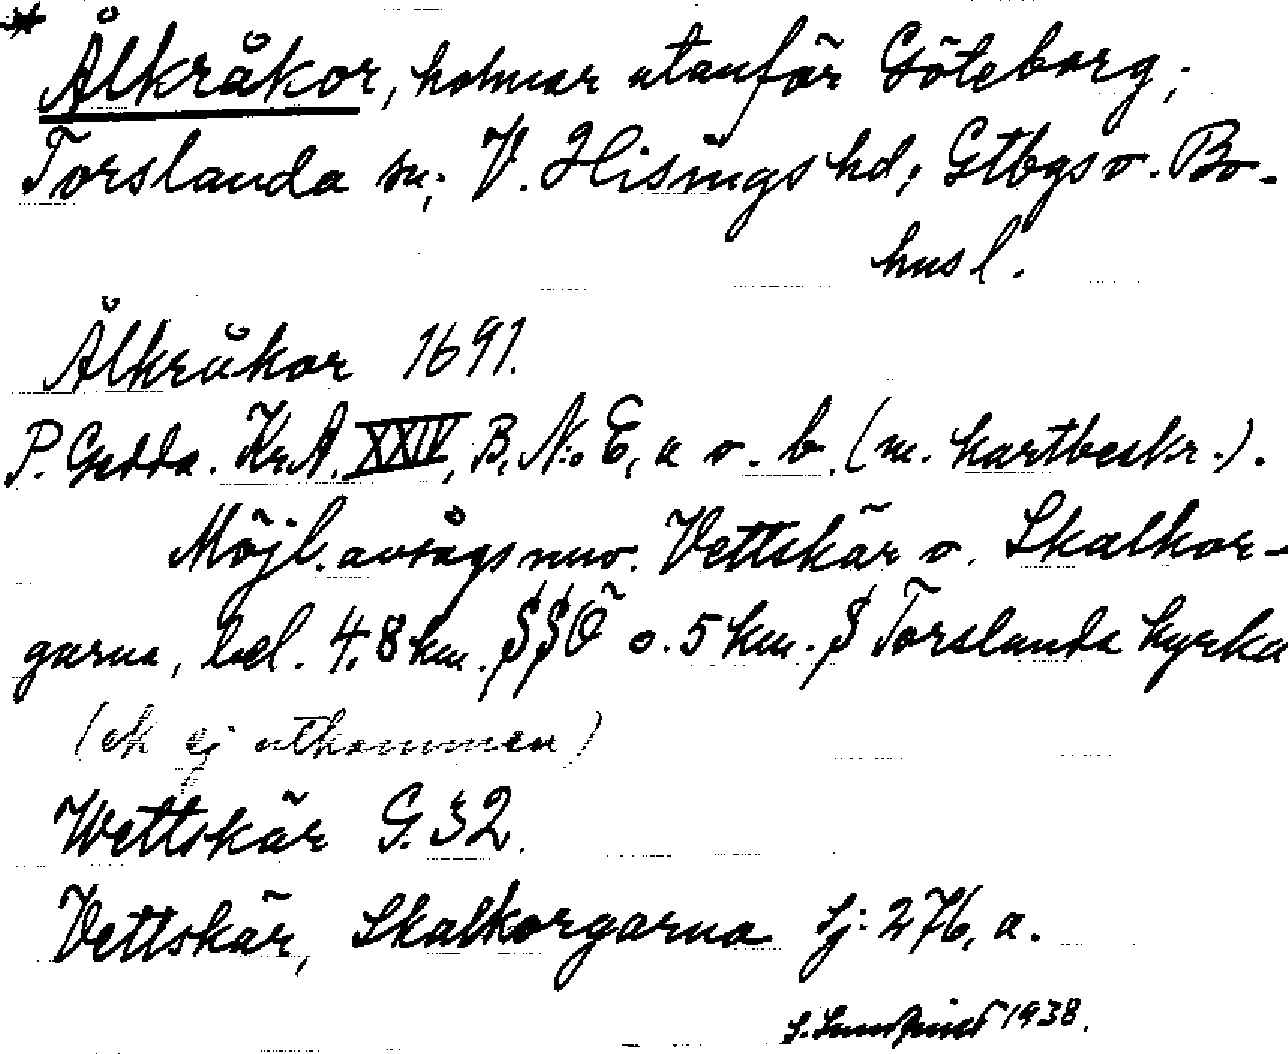 * Ålkråkor, holmar utanför Göteborg,
Torslanda sn; V. Hisings hd; Gtbgs o. Bo-
husl.
Ålkråkor 1691.
P. Gedda. Kr.A. XXIV, B. No E, a o. b. (m. kartbeskr.).
Möjl. avsågs nuv. Vettskär o. Skalkor-
garna, bel. 4.8 km. SSÖ o. 5 km. S Torslanda kyrka
(ek ej utkommen)
Wettskär G. 32.
Vettskär, Skalkorgarna Sj: 276, a.
1938.